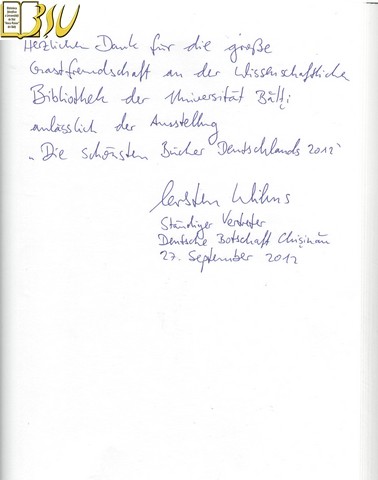 BSU
Herzlichen Dank für die große
Gastfreundschaft an der Wissenschaftliche
Bibliothek der Universität Bălţi
anlässlich der Ausstellung
„Die schönsten Bücher Deutschlands 2012“
Ständiger Vertreter
Deutsche Botschaft Chişinău
27. September 2012